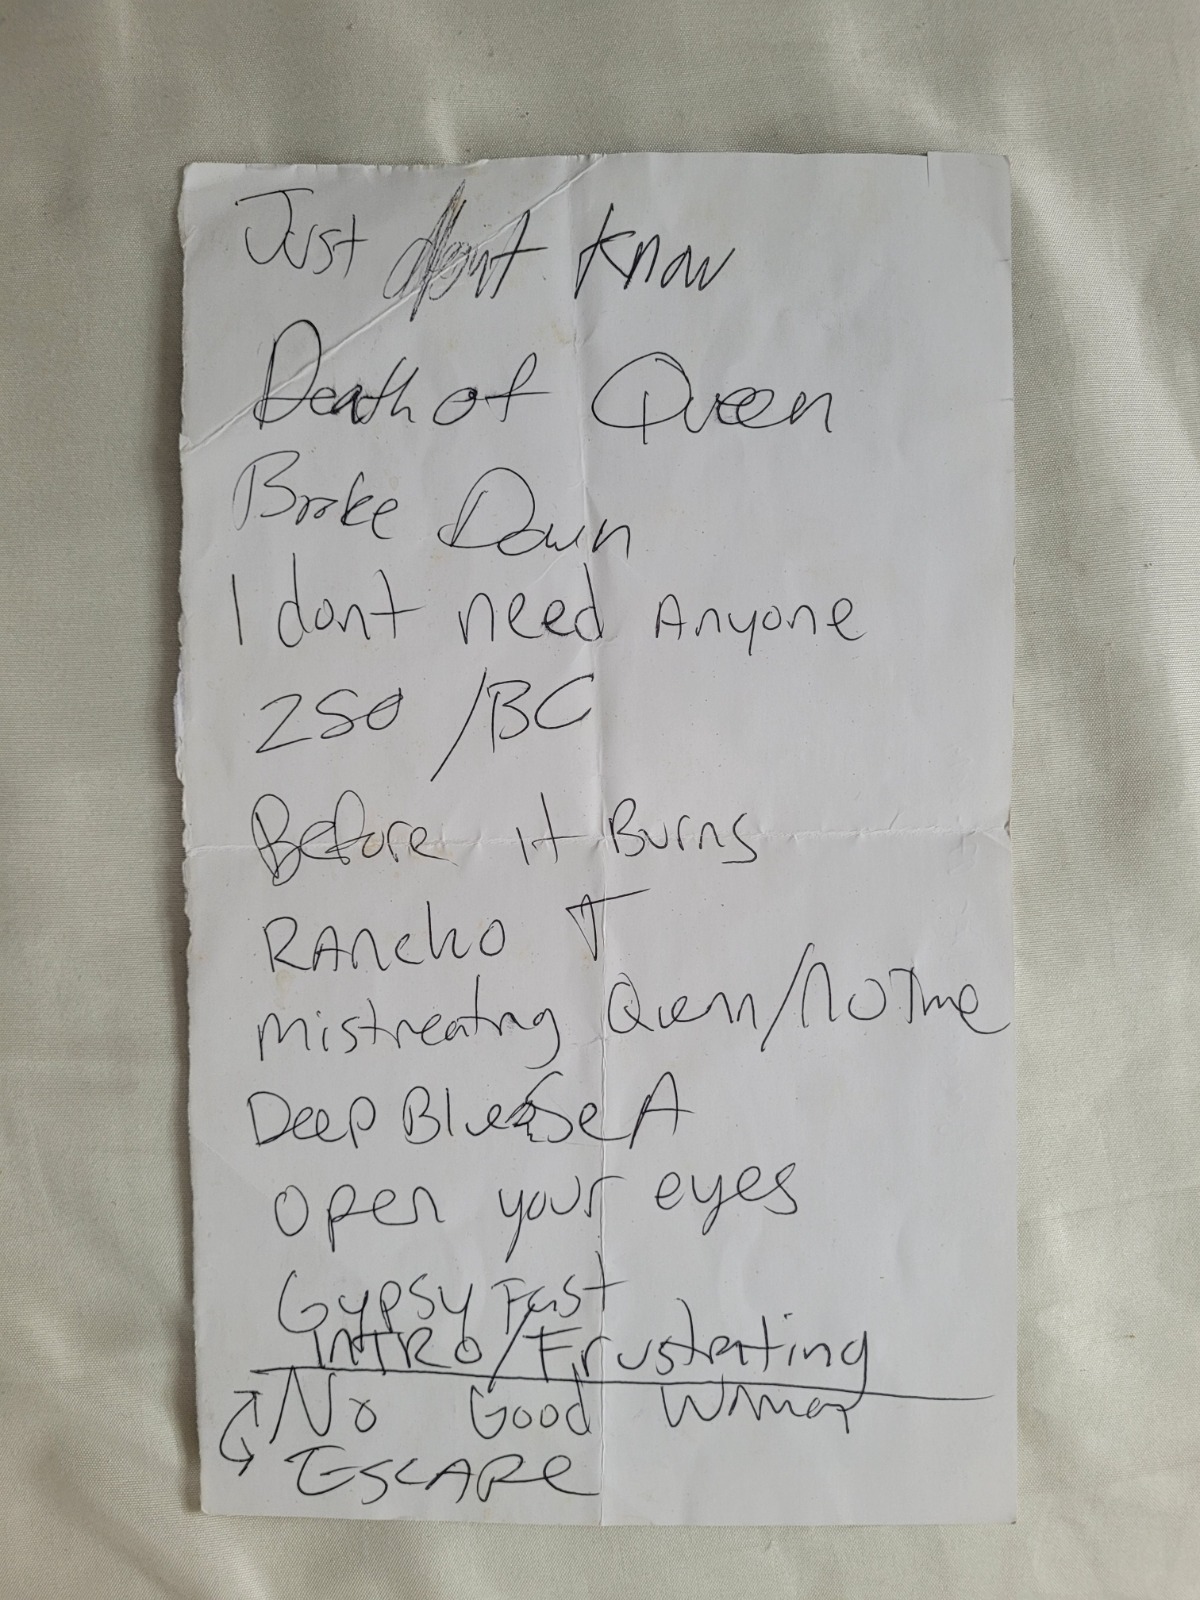 Just dont Know
Death of Queen
Broke Down
I dont need Anyone
250 /BC
Before it Burns
RAncho T
Mistreating Queen/No Time
Deep Blue SeA
open your eyes
Gypsy Fast
INTRO/Frustrating
No Good Woman
ESCAPE